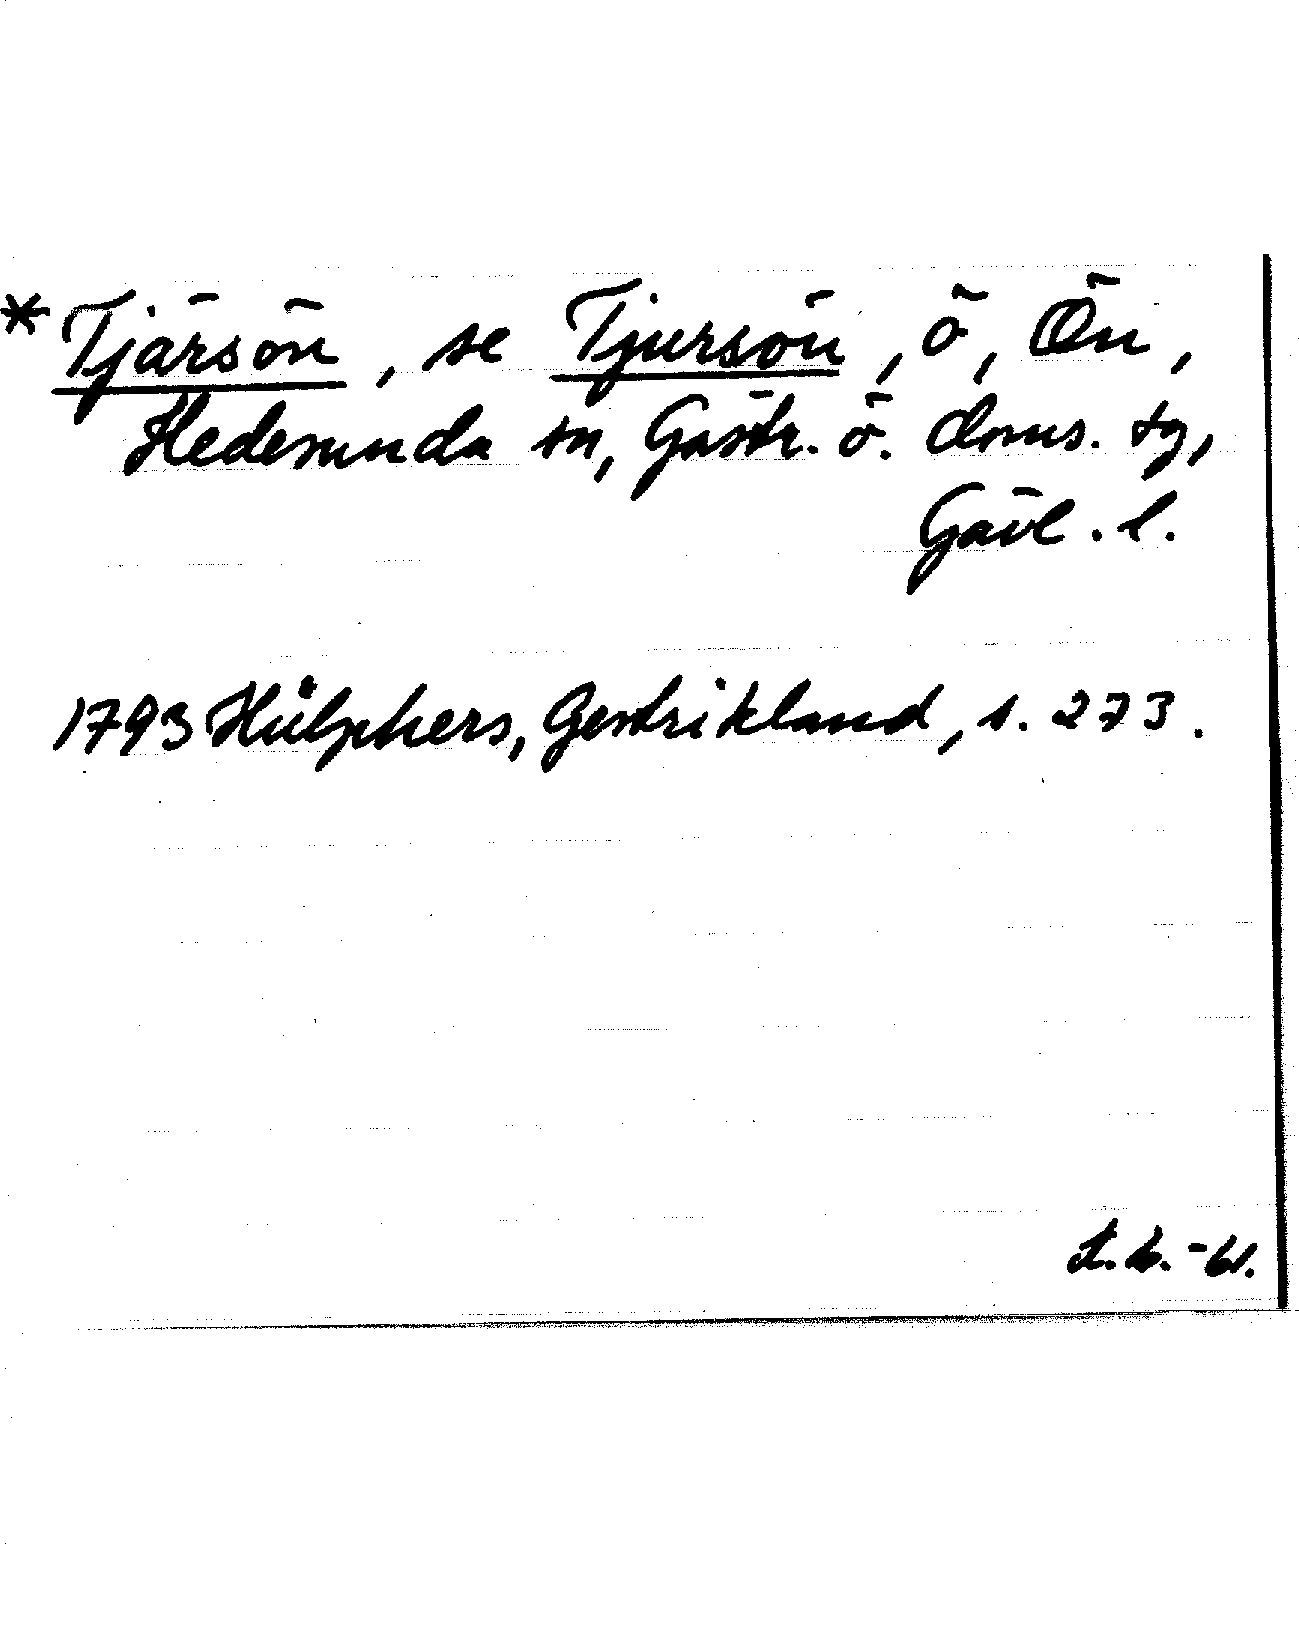 * Tjärsön, se Tjursön, ö, Ön,
Hedesunda sn, Gästr. ö. doms. tg,
Gävl. l.
1793 Hülphers, Gestrikland, s. 273.